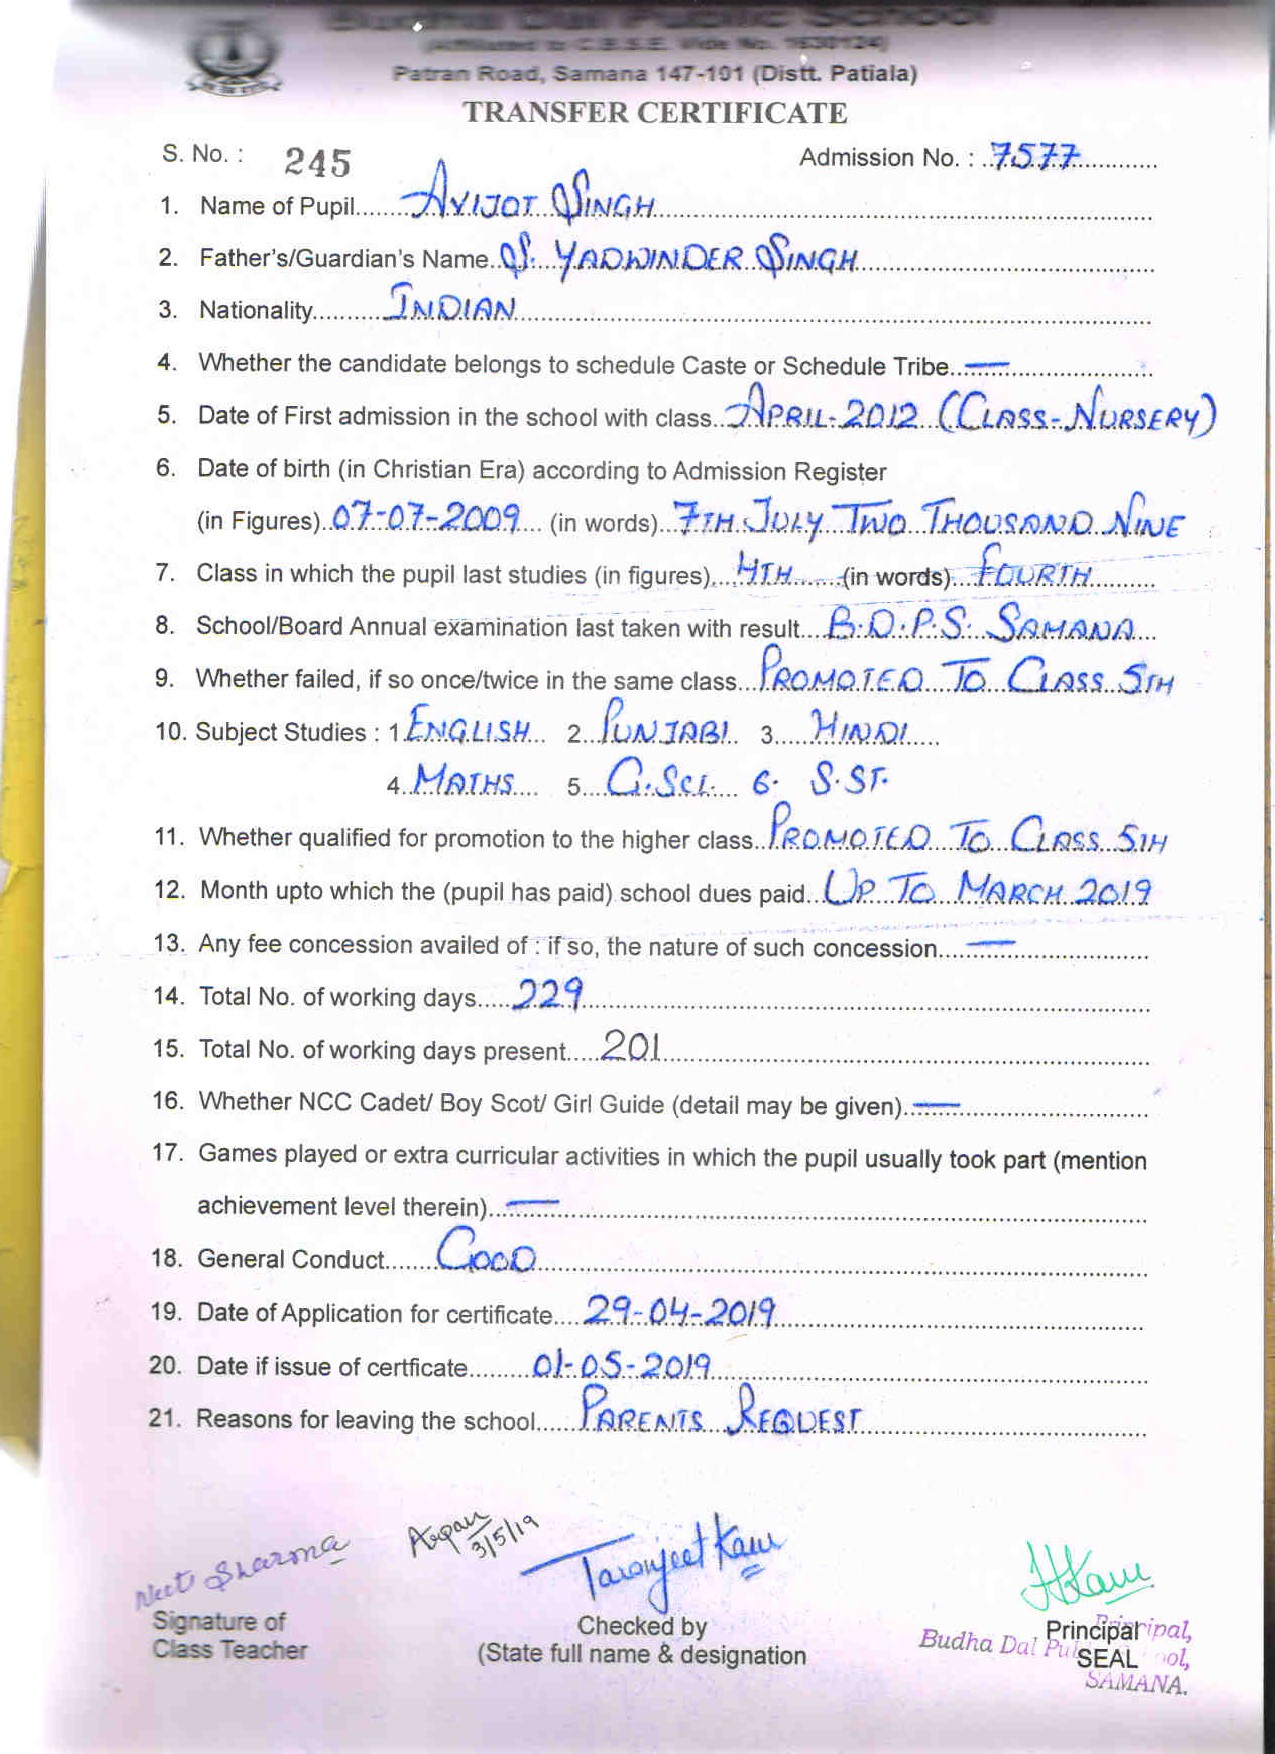 Budha Dal Public School
(Affiliated to C.B.S.E. Vide No. 1630124)
Patran Road, Samana 147-101 (Distt. Patiala)
TRANSFER CERTIFICATE
S. No. : 245 Admission No. : 7577
1. Name of Pupil AVIJOT SINGH
2. Father's/Guardian's Name S. YADWINDER SINGH
3. Nationality INDIAN
4. Whether the candidate belongs to schedule Caste or Schedule Tribe —
5. Date of First admission in the school with class APRIL-2012 (CLASS-NURSERY)
6. Date of birth (in Christian Era) according to Admission Register
(in Figures) 07-07-2009 (in words) 7TH JULY TWO THOUSAND NINE
7. Class in which the pupil last studies (in figures) 4TH (in words) FOURTH
8. School/Board Annual examination last taken with result B.D.P.S. SAMANA
9. Whether failed, if so once/twice in the same class PROMOTED TO CLASS 5TH
10. Subject Studies : 1 ENGLISH 2 PUNJABI 3 HINDI
4 MATHS 5 G.SCI. 6. S.ST.
11. Whether qualified for promotion to the higher class PROMOTED TO CLASS 5TH
12. Month upto which the (pupil has paid) school dues paid UP TO MARCH 2019
13. Any fee concession availed of : if so, the nature of such concession —
14. Total No. of working days 229
15. Total No. of working days present 201
16. Whether NCC Cadet/ Boy Scot/ Girl Guide (detail may be given) —
17. Games played or extra curricular activities in which the pupil usually took part (mention
achievement level therein) —
18. General Conduct GOOD
19. Date of Application for certificate 29-04-2019
20. Date if issue of certficate 01-05-2019
21. Reasons for leaving the school PARENTS REQUEST
Neeti Sharma 3/5/19 Taranjeet Kaur
Signature of
Class Teacher
Checked by
(State full name & designation
Principal
SEAL
Principal,
Budha Dal Pu ol,
SAMANA.